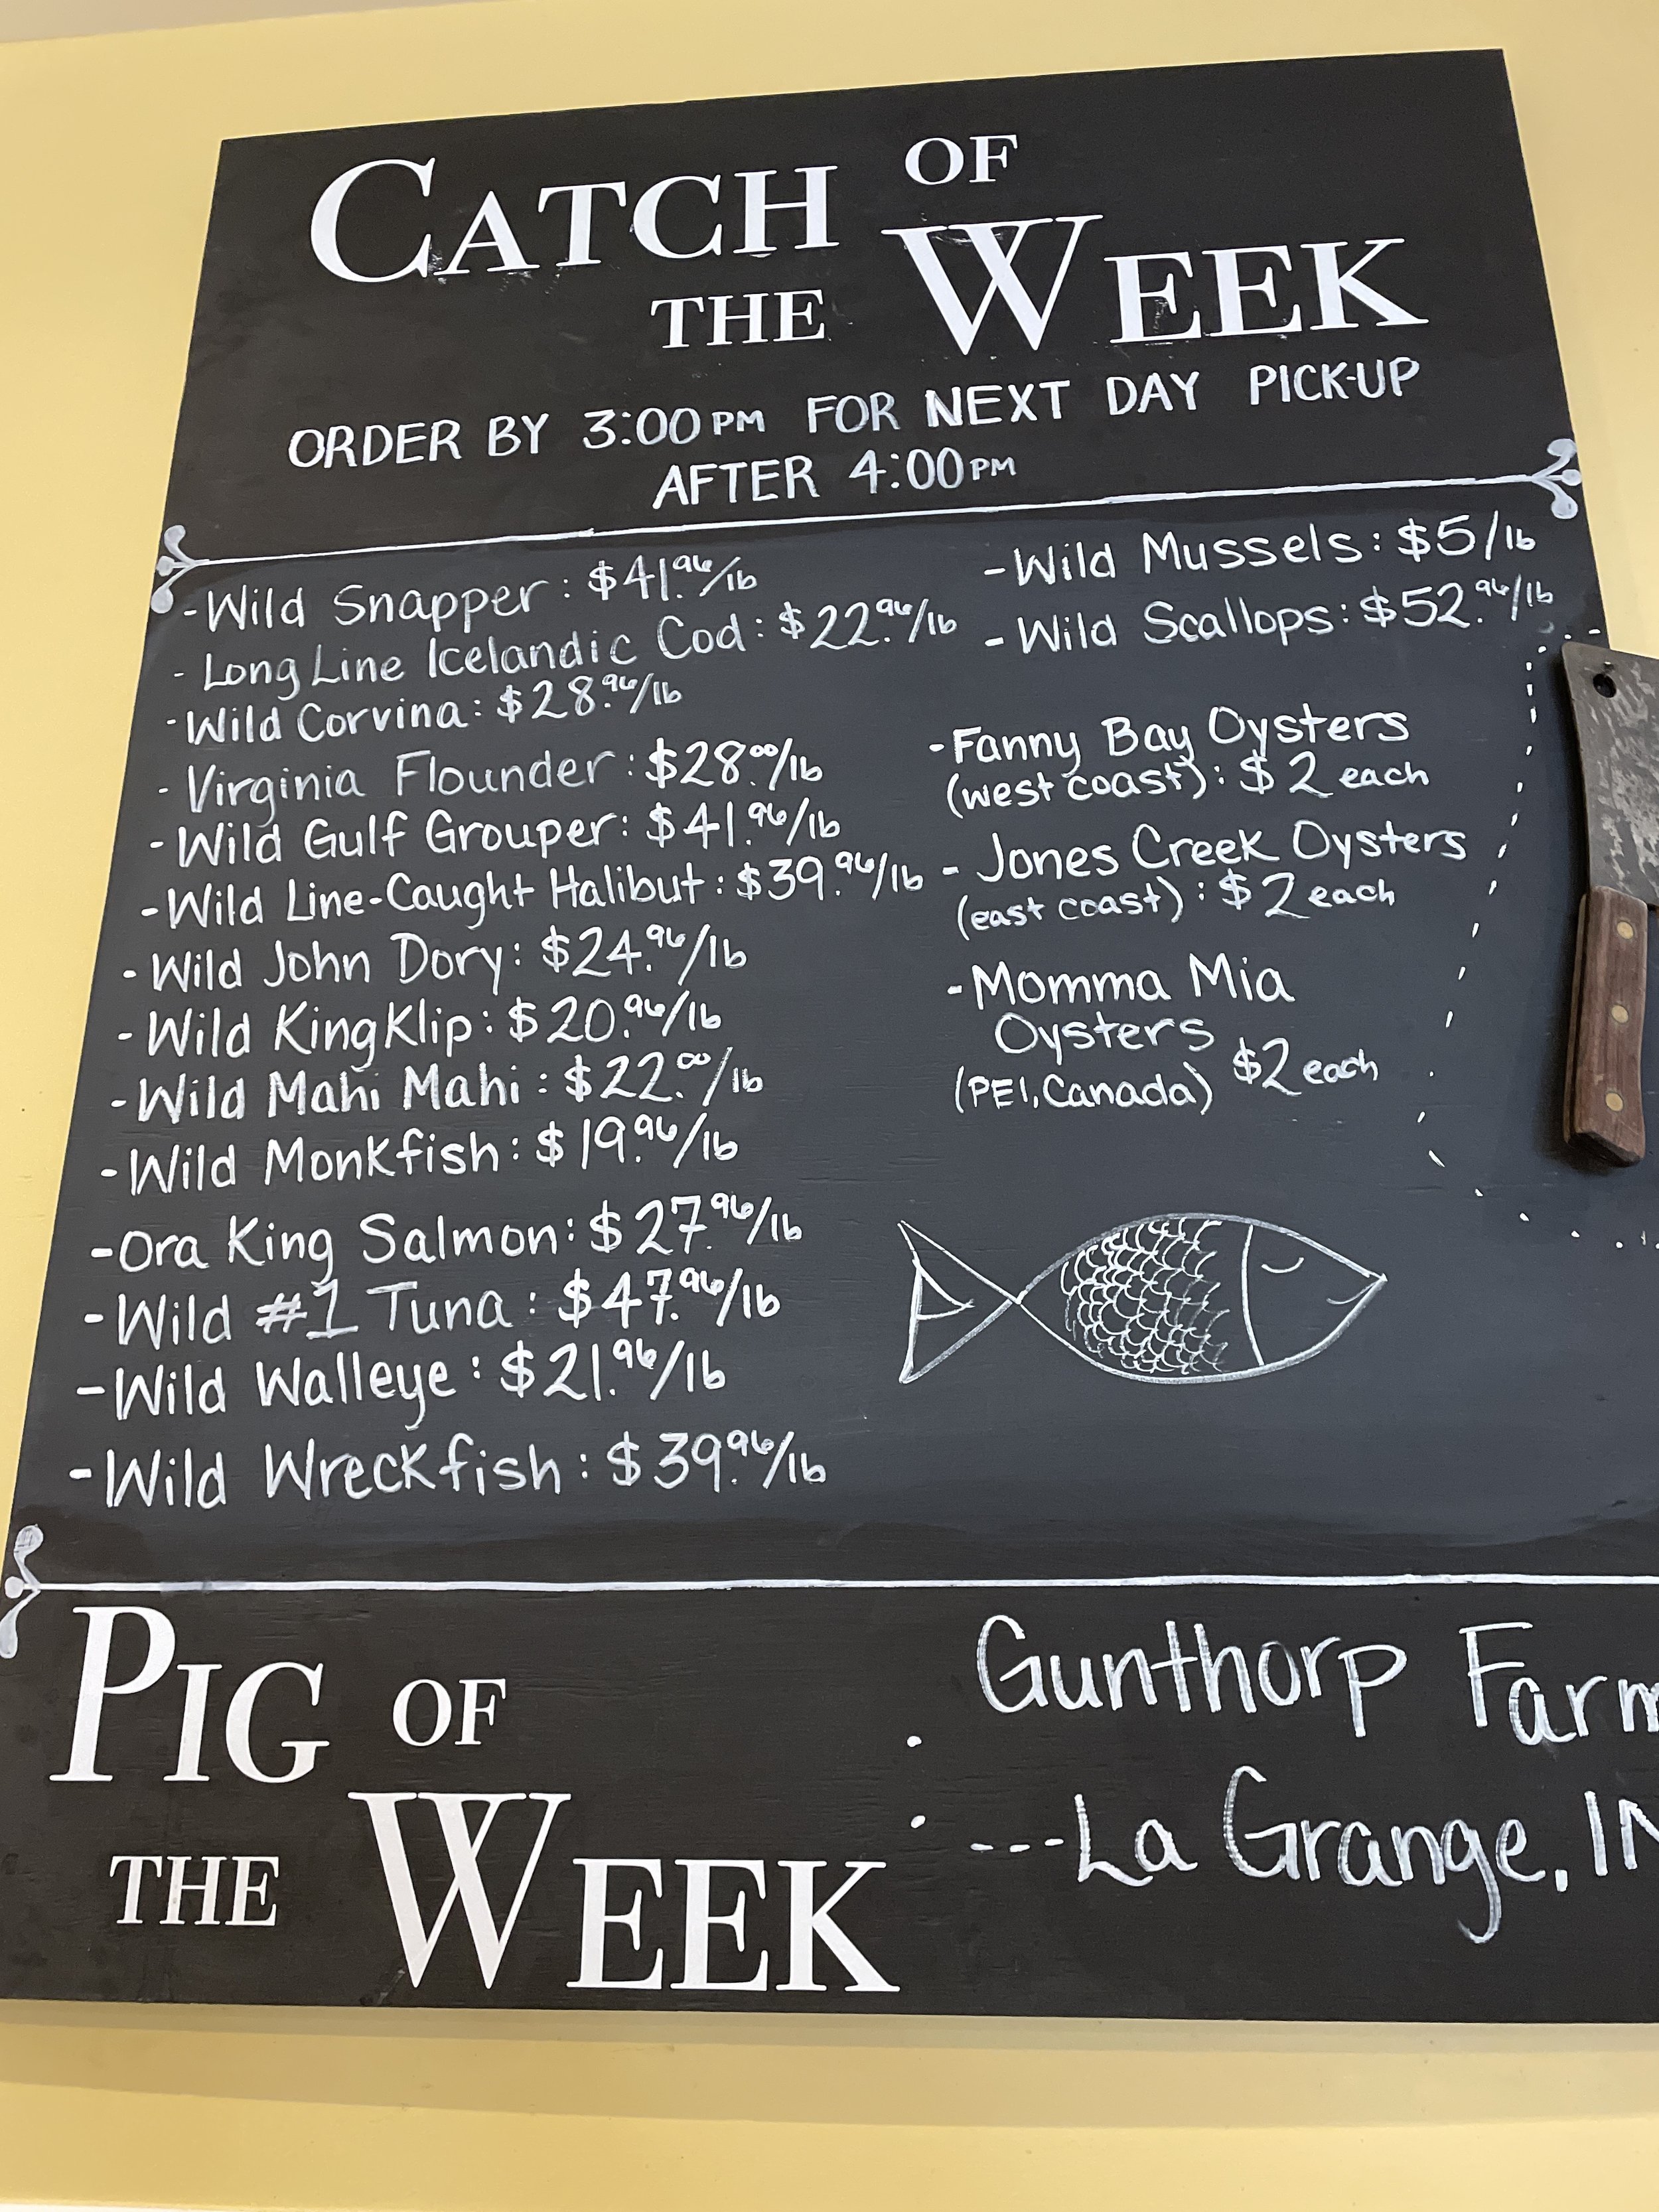 CATCH OF
THE WEEK
ORDER BY 3:00PM FOR NEXT DAY PICK-UP
AFTER 4:00PM
-Wild Snapper: $41.96/lb
-Long Line Icelandic Cod: $22.96/lb
-Wild Corvina: $28.96/lb
-Virginia Flounder: $28.00/lb
-Wild Gulf Grouper: $41.96/lb
-Wild Line-Caught Halibut: $39.96/lb
-Wild John Dory: $24.96/lb
-Wild KingKlip: $20.96/lb
-Wild Mahi Mahi: $22.00/lb
-Wild Monkfish: $19.96/lb
-Ora King Salmon: $27.96/lb
-Wild #1 Tuna: $47.96/lb
-Wild Walleye: $21.96/lb
-Wild Wreckfish: $39.96/lb
-Wild Mussels: $5/lb
-Wild Scallops: $52.96/lb
-Fanny Bay Oysters
(west coast): $2 each
-Jones Creek Oysters
(east coast): $2 each
-Momma Mia
Oysters
(PEI, Canada) $2 each
PIG OF
THE WEEK
:
Gunthorp Farm
---La Grange, IN